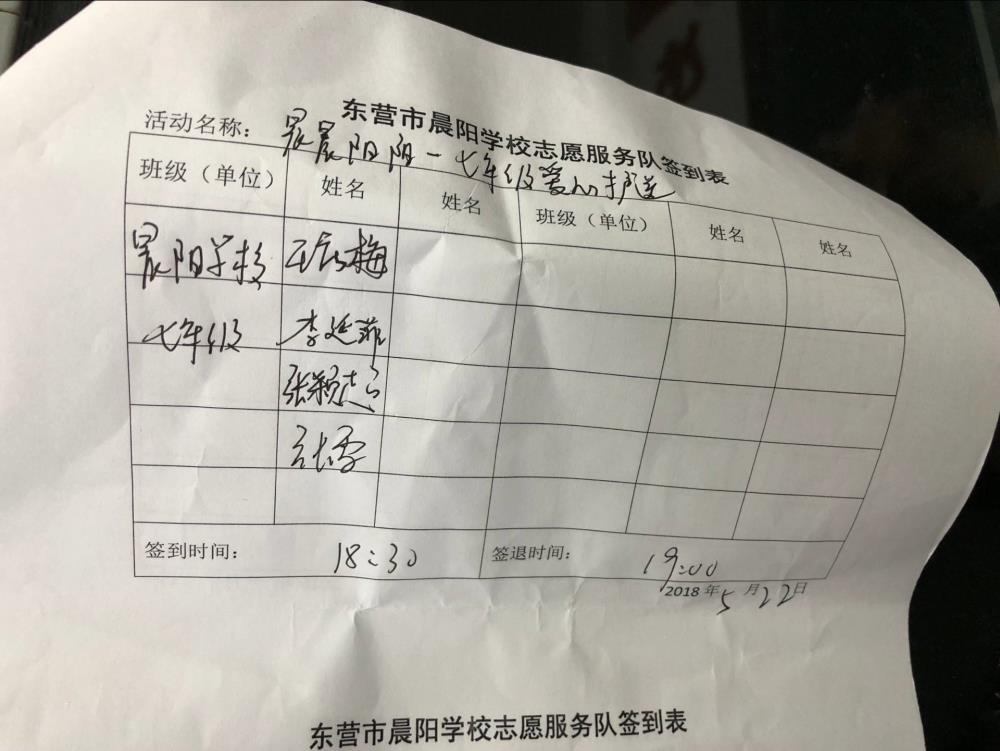 东营市晨阳学校志愿服务队签到表
活动名称：晨晨阳阳一七年级爱心护送
班级（单位） 姓名 姓名 班级（单位） 姓名 姓名
晨阳学校 梅
七年级 李延菲
张颖
签到时间： 18:30 签退时间： 19:00
2018年5月22日
东营市晨阳学校志愿服务队签到表